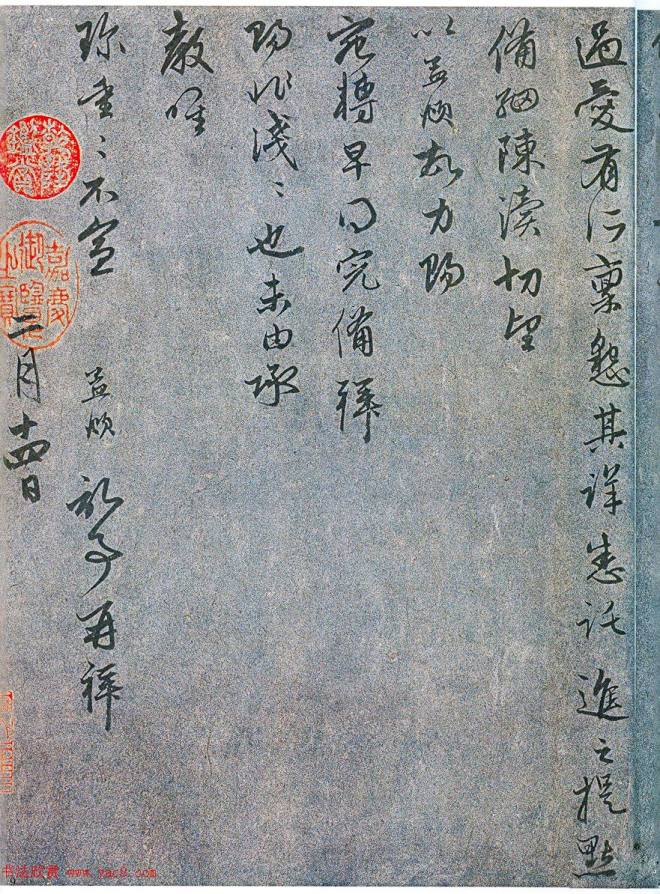 過愛有所稟懇其詳悉託進之提點
備細陳瀆切望
以孟頫故力賜
宛轉早得完備拜
賜非淺々也未由承
教唯
珍重々不宣 孟頫 再拜
二月十四日
乾隆鑑賞
嘉慶御覽之寶
书法欣赏 www.yac8.com